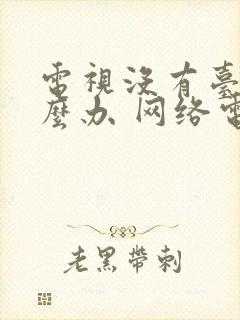 電視沒有臺
麼办 网络電
老黑帶刺